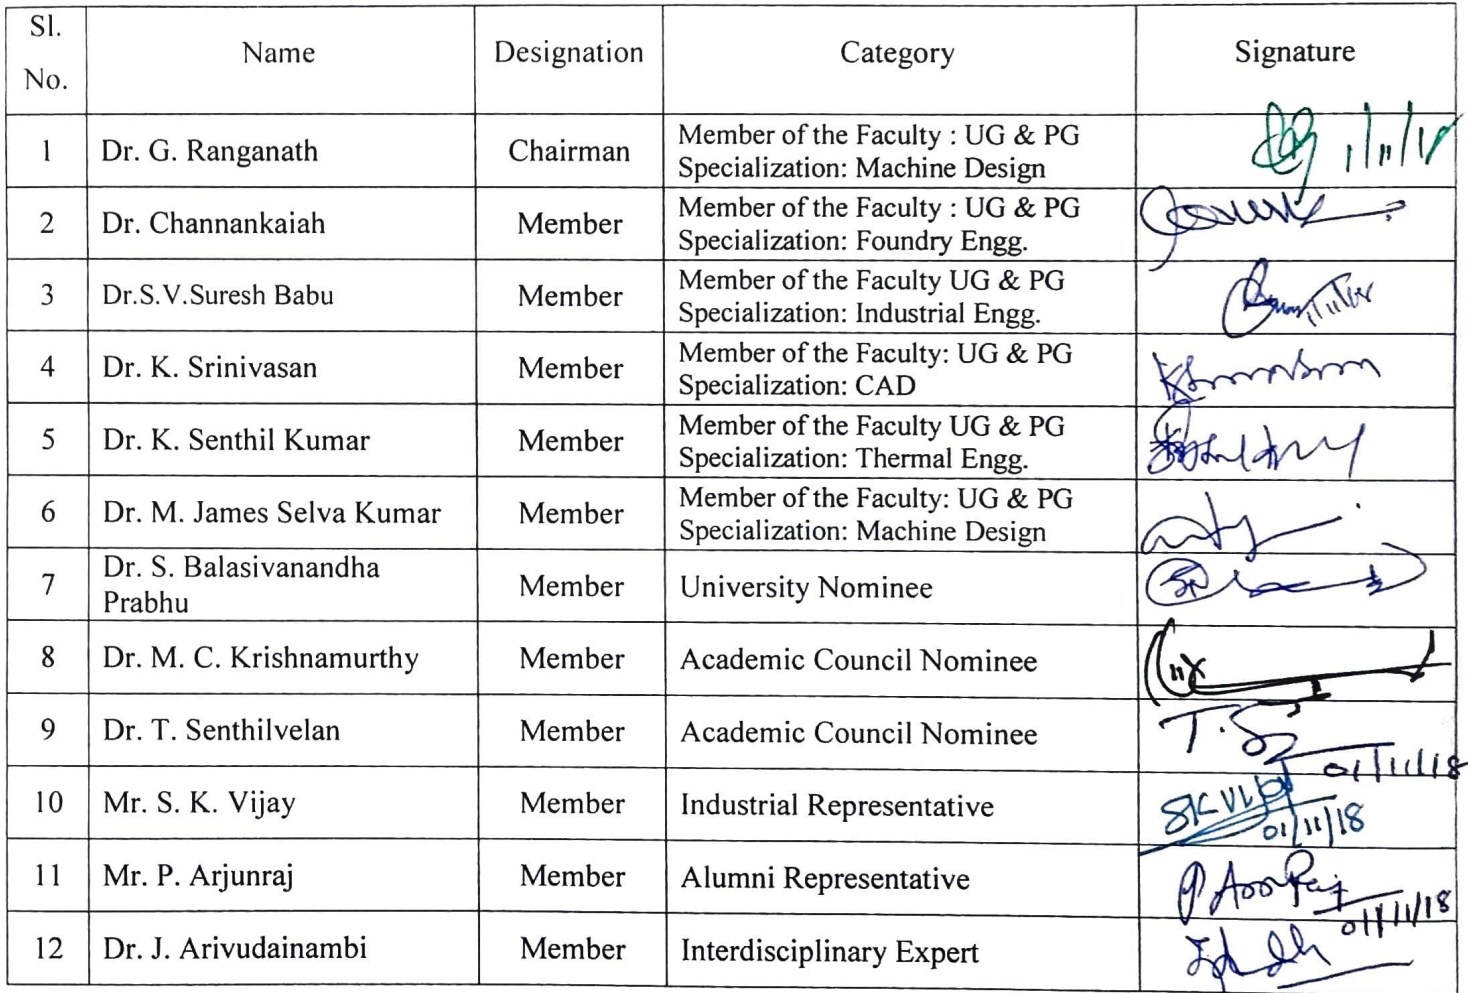 Sl.
No.
Name
Designation
Category
Signature
1
Dr. G. Ranganath
Chairman
Member of the Faculty : UG & PG
Specialization: Machine Design
1/11/18
2
Dr. Channankaiah
Member
Member of the Faculty : UG & PG
Specialization: Foundry Engg.
3
Dr.S.V.Suresh Babu
Member
Member of the Faculty UG & PG
Specialization: Industrial Engg.
4
Dr. K. Srinivasan
Member
Member of the Faculty: UG & PG
Specialization: CAD
5
Dr. K. Senthil Kumar
Member
Member of the Faculty UG & PG
Specialization: Thermal Engg.
6
Dr. M. James Selva Kumar
Member
Member of the Faculty: UG & PG
Specialization: Machine Design
7
Dr. S. Balasivanandha
Prabhu
Member
University Nominee
8
Dr. M. C. Krishnamurthy
Member
Academic Council Nominee
9
Dr. T. Senthilvelan
Member
Academic Council Nominee
01/11/18
10
Mr. S. K. Vijay
Member
Industrial Representative
01/11/18
11
Mr. P. Arjunraj
Member
Alumni Representative
01/11/18
12
Dr. J. Arivudainambi
Member
Interdisciplinary Expert